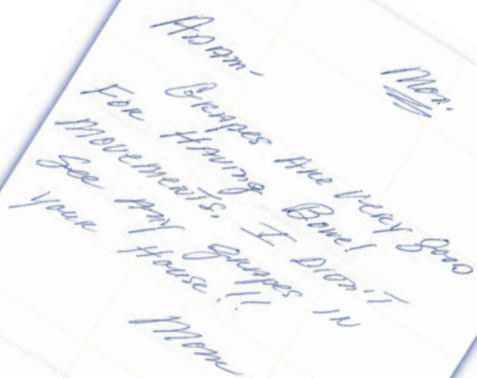 Mon.
Adam-
Grapes Are very Good
For Having Bowel
movements. I Didn't
See any grapes in
your House!!
Mom